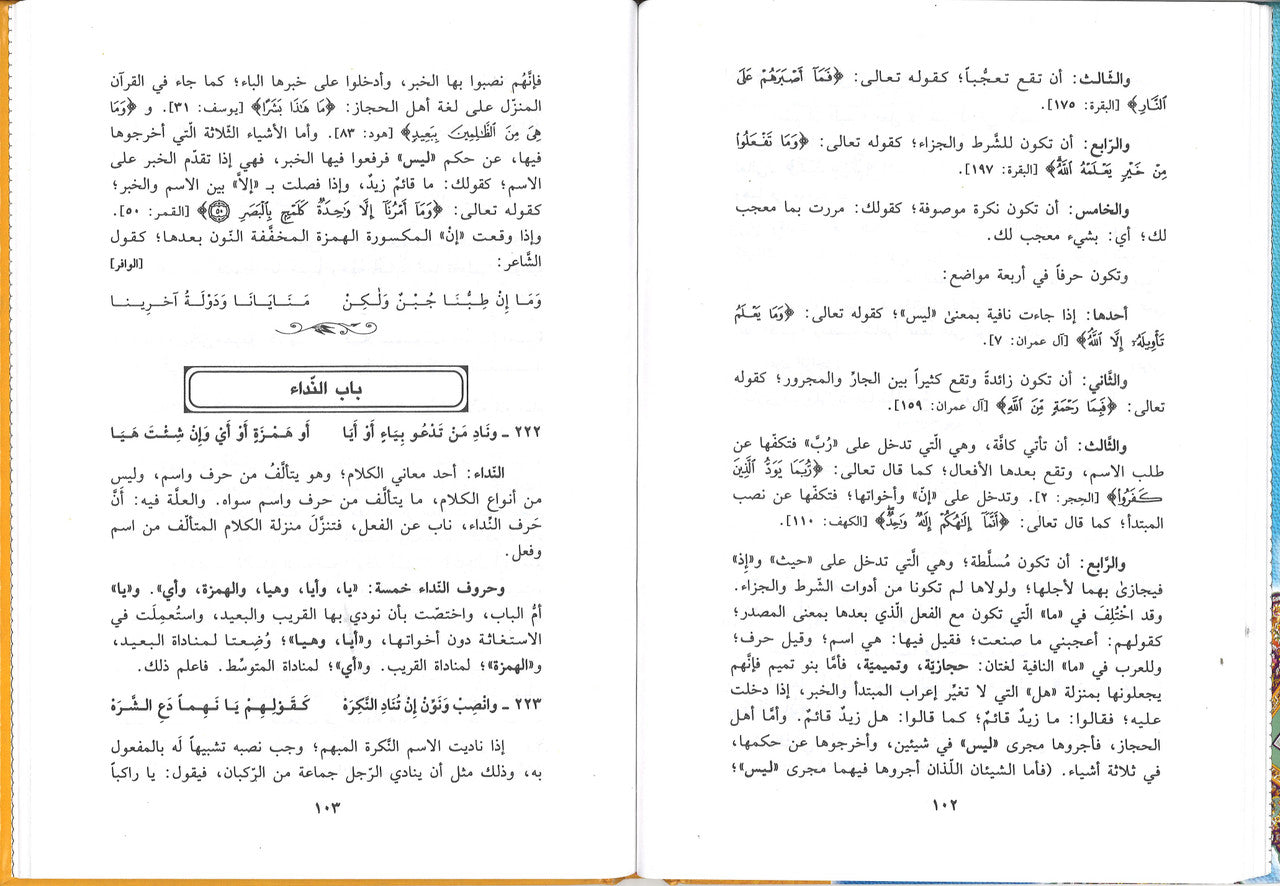 والثّالث: أن تقع تعجُّباً؛ كقوله تعالى: ﴿فَمَآ أَصْبَرَهُمْ عَلَى
ٱلنَّارِ﴾ [البقرة: ١٧٥].
والرّابع: أن تكون للشَّرط والجزاء؛ كقوله تعالى: ﴿وَمَا تَفْعَلُوا۟
مِنْ خَيْرٍ يَعْلَمْهُ ٱللَّهُ﴾ [البقرة: ١٩٧].
والخامس: أن تكون نكرة موصوفة؛ كقولك: مررت بما معجب
لك؛ أي: بشيء معجب لك.
وتكون حرفاً في أربعة مواضع:
أحدها: إذا جاءت نافية بمعنىٰ «ليس»؛ كقوله تعالى: ﴿وَمَا يَعْلَمُ
تَأْوِيلَهُۥٓ إِلَّا ٱللَّهُ﴾ [آل عمران: ٧].
والثَّاني: أن تكون زائدةً وتقع كثيراً بين الجارِّ والمجرور؛ كقوله
تعالى: ﴿فَبِمَا رَحْمَةٍ مِّنَ ٱللَّهِ﴾ [آل عمران: ١٥٩].
والثَّالث: أن تأتي كافَّة، وهي الَّتي تدخل على «رُبَّ» فتكفّها عن
طلب الاسم، وتقع بعدها الأفعال؛ كما قال تعالى: ﴿رُّبَمَا يَوَدُّ ٱلَّذِينَ
كَفَرُوا۟﴾ [الحِجر: ٢]. وتدخل على «إنّ» وأخواتها؛ فتكفّها عن نصب
المبتدأ؛ كما قال تعالى: ﴿أَنَّمَآ إِلَٰهُكُمْ إِلَٰهٌ وَٰحِدٌ﴾ [الكهف: ١١٠].
والرَّابع: أن تكون مُسلَّطة؛ وهي الَّتي تدخل على «حيث» و«إِذ»
فيجازىٰ بهما لأجلها؛ ولولاها لم تكونا من أدوات الشَّرط والجزاء.
وقد اخْتُلِفَ في «ما» الَّتي تكون مع الفعل الَّذي بعدها بمعنى المصدر؛
كقولهم: أعجبني ما صنعت؛ فقيل فيها: هي اسم؛ وقيل حرف؛
وللعرب في «ما» النافية لغتان: حجازيّة، وتميميّة، فأمَّا بنو تميم فإنَّهم
يجعلونها بمنزلة «هل» التي لا تغيِّر إعراب المبتدأ والخبر، إذا دخلت
عليه؛ فقالوا: ما زيدٌ قائمٌ؛ كما قالوا: هل زيدٌ قائمٌ. وأمَّا أهل
الحجاز، فأجروها مجرى «ليس» في شيئين، وأخرجوها عن حكمها،
في ثلاثة أشياء. (فأما الشيئان اللّذان أجروها فيهما مجرى «ليس»؛
١٠٢
فإنَّهُم نصبوا بها الخبر، وأدخلوا على خبرها الباء؛ كما جاء في القرآن
المنزّل على لغة أهل الحجاز: ﴿مَا هَٰذَا بَشَرًا﴾ [يوسف: ٣١]. و ﴿وَمَا
هِىَ مِنَ ٱلظَّٰلِمِينَ بِبَعِيدٍ﴾ [هود: ٨٣]. وأما الأشياء الثّلاثة الّتي أخرجوها
فيها، عن حكم «ليس» فرفعوا فيها الخبر، فهي إذا تقدّم الخبر على
الاسم؛ كقولك: ما قائمٌ زيدٌ، وإذا فصلت بـ «إلاَّ» بين الاسم والخبر؛
كقوله تعالى: ﴿وَمَآ أَمْرُنَآ إِلَّا وَٰحِدَةٌ كَلَمْحٍ بِٱلْبَصَرِ ۝٥٠﴾ [القمر: ٥٠].
وإذا وقعت «إنْ» المكسورة الهمزة المخفَّفة النّون بعدها؛ كقول
الشَّاعر: [الوافر]
وَمَـا إِنْ طِبُّنَـا جُبْـنٌ وَلٰكِـنْ مَنَـايَـانَـا وَدَوْلَـةُ آخَـرِينـا
باب النّداء
٢٢٢ ـ ونَادِ مَنْ تَدْعُو بِيَاءٍ أَوْ أَيَا أَو هَمْـزَةٍ أَوْ أَيْ وَإِنْ شِئْـتَ هَيَـا
النّداء: أحد معاني الكلام؛ وهو يتألَّفُ من حرف واسم، وليس
من أنواع الكلام، ما يتألَّف من حرف واسم سواه. والعلَّة فيه: أنَّ
حَرف النّداء، ناب عن الفعل، فتنزَّلَ منزلة الكلام المتألّف من اسم
وفعل.
وحروف النّداء خمسة: «يا، وأيا، وهيا، والهمزة، وأي». و«يا»
أمُّ الباب، واختصّت بأن نودي بها القريب والبعيد، واستُعمِلَت في
الاستغاثة دون أخواتهـا، و«أيا، وهيـا»؛ وُضِعتا لمناداة البعيـد،
و«الهمزة»؛ لمناداة القريب. و«أي»؛ لمناداة المتوسِّط. فاعلم ذلك.
٢٢٣ ـ وانْصِبْ وَنَوِّنْ إِنْ تُنَادِ النَّكِرَهْ كَقَـوْلِـهِـمْ يَـا نَـهِـمـاً دَعِ الـشَّـرَهْ
إذا ناديت الاسم النَّكرة المبهم؛ وجب نصبه تشبيهاً لَه بالمفعول
به، وذلك مثل أن ينادي الرّجل جماعة من الرّكبان، فيقول: يا راكباً
١٠٣